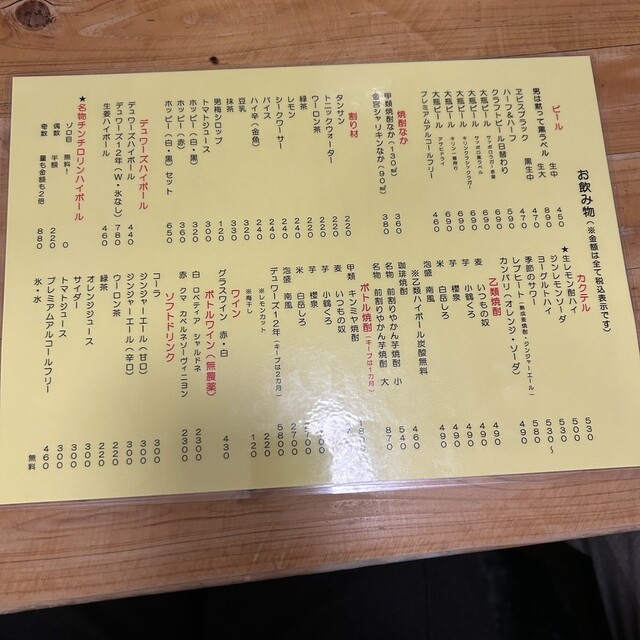 お飲み物(※金額は全て税込表示です)
ビール
男は黙って黒ラベル 生中 450
生大 890
ヱビスブラック 黒生中
ハーフ&ハーフ 470
クラフトビール日替わり 590
大瓶ビール サッポロラガー赤星 690
大瓶ビール サッポロ黒ラベル 690
大瓶ビール キリンクラシックラガー 690
大瓶ビール キリン一番搾り 690
大瓶ビール アサヒドライ 690
プレミアムアルコールフリー 460
焼酎なか
甲類焼酎なか(130㎖) 360
金宮シャリキンなか(90㎖) 380
割り材
タンサン 220
トニックウォーター 220
ウーロン茶 220
緑茶 220
レモン 240
シークワーサー 240
バイス 240
ハイ辛(金魚) 240
豆乳 320
抹茶 330
男梅シロップ 120
トマトジュース 300
ホッピー(白・黒) 320
ホッピー(赤) 360
ホッピー(白・黒)セット 650
デュワーズハイボール
デュワーズハイボール 440
デュワーズ12年(W・氷なし) 780
生姜ハイボール 460
★名物チンチロリンハイボール
ゾロ目 無料! 0
偶数 半額 220
奇数 量も金額も2倍 880
カクテル
★生レモン酎ハイ 530
ジンレモンソーダ 500
ヨーグルトハイ 500
季節のサワー 530~
レブヒート(養成薬焼酎・ジンジャーエール) 580
カンパリ(オレンジ・ソーダ) 490
乙類焼酎
麦 いつもの奴 490
芋 小鶴くろ 490
芋 櫻泉 490
米 白岳しろ 490
泡盛 南風 490
※乙類ハイボール炭酸無料
珈琲焼酎 460
名物 前割りやかん芋焼酎 小 540
名物 前割りやかん芋焼酎 大 870
ボトル焼酎(キープは1カ月)
甲類 キンミヤ焼酎
麦 いつもの奴
芋 小鶴くろ
芋 櫻泉
米 白岳しろ
泡盛 南風
デュワーズ12年(キープは2カ月) 5800
※レモンカット 220
※梅干し 120
ワイン
グラスワイン 赤・白 430
ボトルワイン(無農薬)
白 ロティアシャルドネ 2300
赤 クマ カベルネソーヴィニヨン 2300
ソフトドリンク
コーラ 300
ジンジャーエール(甘口) 300
ジンジャーエール(辛口) 300
ウーロン茶 220
緑茶 220
オレンジジュース 300
サイダー 300
トマトジュース 300
プレミアムアルコールフリー 460
氷・水 無料